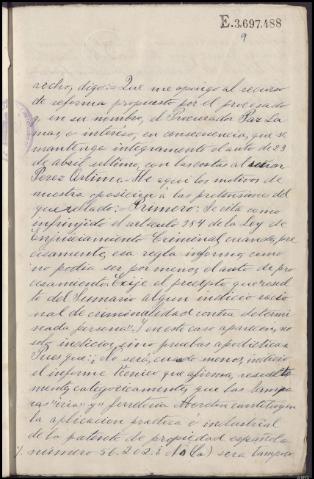 E.3.697.488
9
recho, digo: Que me opongo al recurso
de reforma propuesto por el procesado
y en su nombre, el Procurador Paz La
mas, é intereso, en consecuencia, que se
mantenga integramente el auto de 23
de abril ultimo, con las costas al señor
Perez Astima.= He aqui los motivos de
nuestra oposicion á las pretensiones del
querellado:= Primero: Se cita como
infringido el articulo 384 de la Ley de
Enjuiciamiento Criminal cuando, pre
cisamente, esa regla informa, como
no podia ser por menos, el auto de pro
cesamiento. Exije el precepto, que result
te del Sumario algun indicio racio
nal de criminalidad contra determi
nada persona. Y en este caso aparecen, no
solo indicios, sino pruebas apodicticas
Pues que, ¿No será, cuando menos, indicio
el informe técnico que afirma, resuelta
mente, categoricamente, que las lampa
ras "iria" y constituyen
la aplicacion practica é industrial
de la patente de propiedad española
número 56.202? ¿No (la) sera tampo